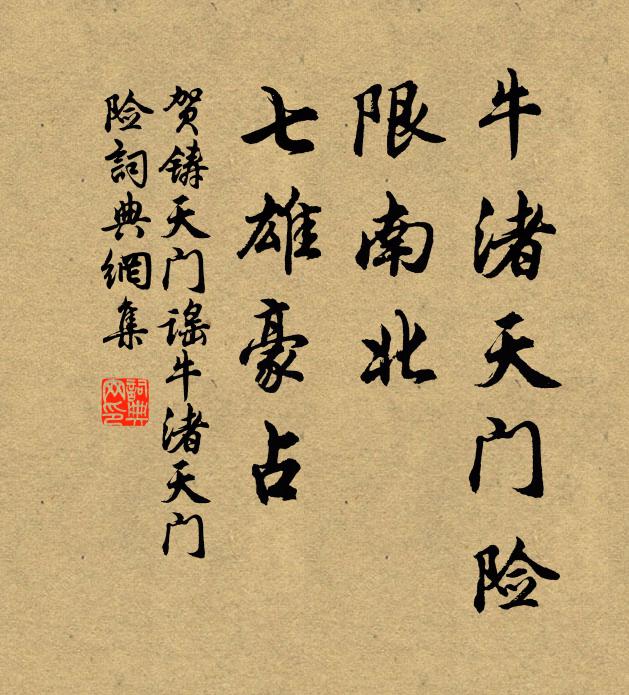 牛渚天门险
限南北
七雄豪占
贺铸天门谣牛渚天门
险词典網集
詞典網印